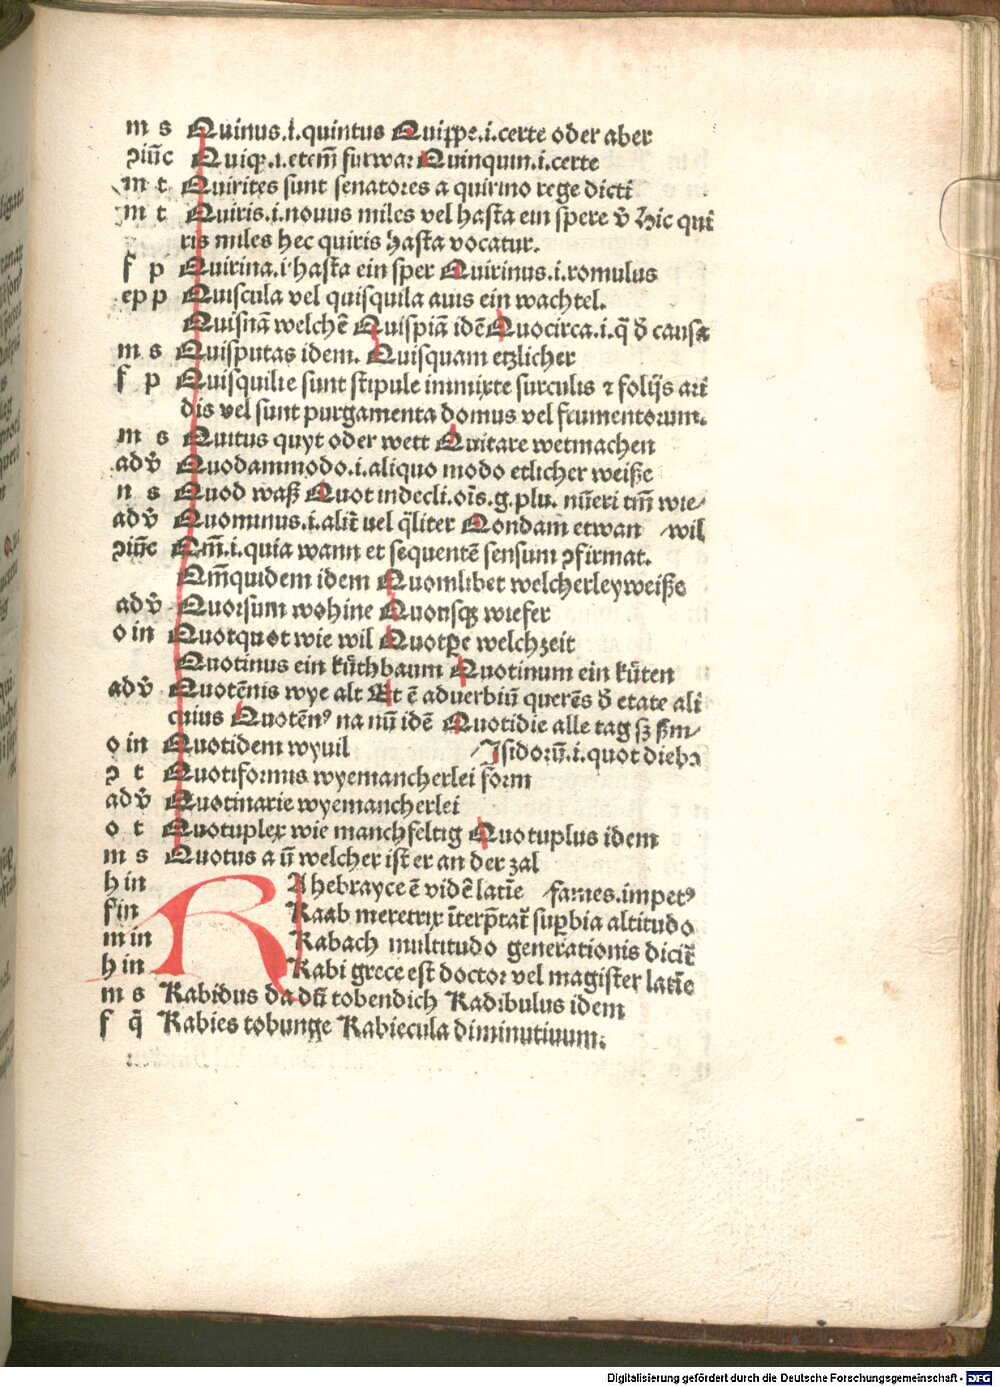 m s Quinus.i.quintus Quippe.i.certe oder aber
ꝯiūc Quiqꝫ.i.etem̄ furwar Quinquin.i.certe
m t Quirites sunt senatores a quirino rege dicti
m t Quiris.i.nouus miles vel hasta ein spere v̄ Hic qui
ris miles hec quiris hasta vocatur.
f p Quirina.i hasta ein sper Quirinus.i.romulus
ep p Quiscula vel quisquila auis ein wachtel.
Quisnā welchē Quispiā idē Quocirca.i.q̄ d̄ causa
m s Quisputas idem. Quisquam etzlicher
f p Quisquilie sunt stipule immixte surculis ⁊ folijs ari
dis vel sunt purgamenta domus vel frumentorum.
m s Quitus quyt oder wett Quitare wetmachen
adv̄ Quodammodo.i.aliquo modo etlicher weiße
n s Quod waß Quot indecli.oīs.g.plu. nūeri tm̄ wie/
adv̄ Quominus.i.alit̄ uel q̄liter Qondam etwan /wil
ꝯiūc Qm̄.i.quia wann et sequentē sensum ꝯfirmat.
Qm̄quidem idem Quomlibet welcherleyweiße
adv̄ Quorsum wohine Quousqꝫ wiefer
o in Quotquot wie wil Quotꝑe welchzeit
Quotinus ein kūthbaum Quotinum ein kūten
adv̄ Quotēnis wye alt Et ē aduerbiū querēs d̄ etate ali
cuius Quotēnꝰ na nū idē Quotidie alle tag sꝫ sm̄/
o in Quotidem wyuil /Jsidorū.i.quot diebꝫ
ꝯ t Quotiformis wyemancherlei form
adv̄ Quotinarie wyemancherlei
o t Quotuplex wie manchfeltig Quotuplus idem
m s Quotus a ū welcher ist er an der zal
h in RA hebrayce ē vidē latīe /fames.impetꝰ
f in Raab meretrix īterp̄tat̄ suꝑbia altitudo
m in Rabach multitudo generationis dicit̄
h in Rabi grece est doctor vel magister latīe
m s Rabidus da dū tobendich Radibulus idem
f q̄ Rabies tobunge Rabiecula diminutiuum.
Digitalisierung gefördert durch die Deutsche Forschungsgemeinschaft - DFG